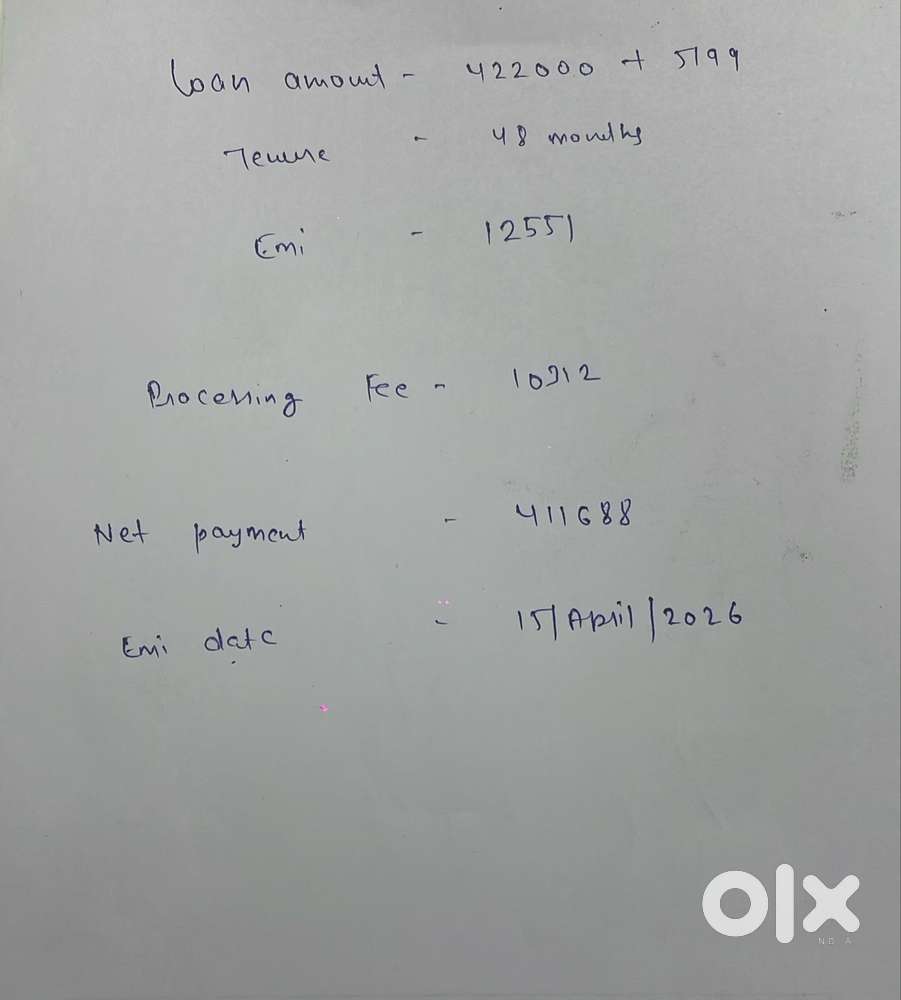 Loan amount - 422000 + 5199
Tenure - 48 months
Emi - 12551
Processing Fee - 10312
Net payment - 411688
Emi date - 15/April/2026
olx
INDIA